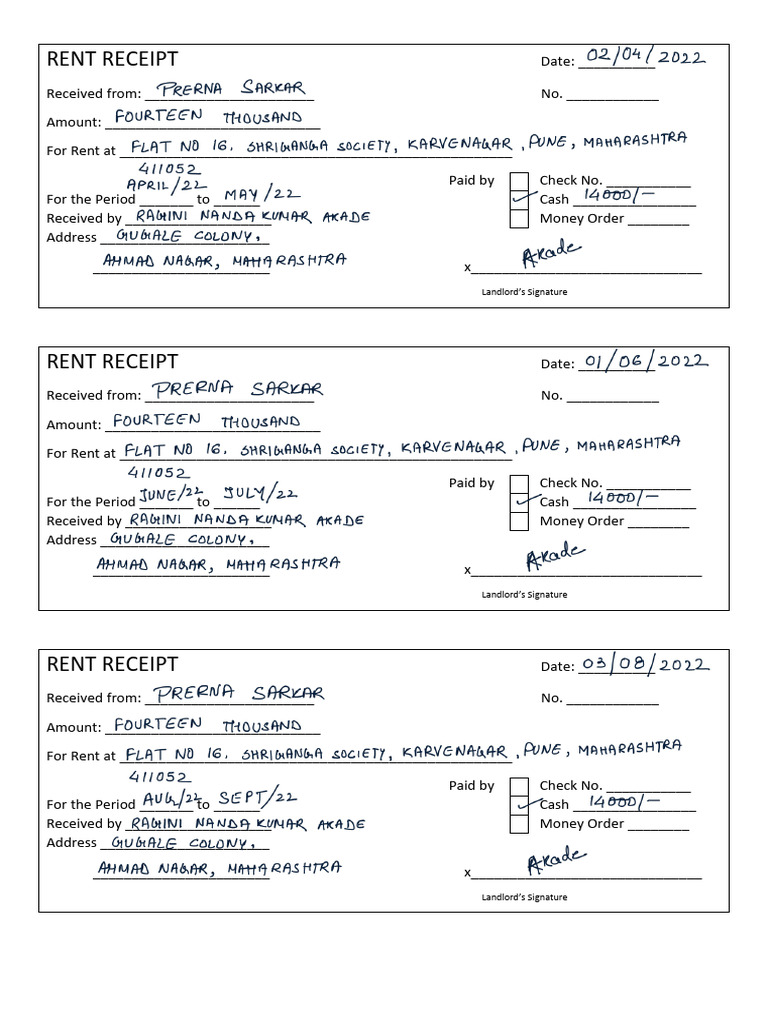 RENT RECEIPT Date: 02/04/2022
Received from: PRERNA SARKAR No.
Amount: FOURTEEN THOUSAND
For Rent at FLAT NO 16. SHRIGANGA SOCIETY, KARVENAGAR, PUNE, MAHARASHTRA
411052
Paid by Check No.
For the Period APRIL/22 to MAY/22 ✓ Cash 14000/-
Received by RAGINI NANDAKUMAR AKADE Money Order
Address GUGALE COLONY,
AHMAD NAGAR, MAHARASHTRA x Akade
Landlord's Signature
RENT RECEIPT Date: 01/06/2022
Received from: PRERNA SARKAR No.
Amount: FOURTEEN THOUSAND
For Rent at FLAT NO 16. SHRIGANGA SOCIETY, KARVENAGAR, PUNE, MAHARASHTRA
411052
Paid by Check No.
For the Period JUNE/22 to JULY/22 ✓ Cash 14000/-
Received by RAGINI NANDAKUMAR AKADE Money Order
Address GUGALE COLONY,
AHMAD NAGAR, MAHARASHTRA x Akade
Landlord's Signature
RENT RECEIPT Date: 03/08/2022
Received from: PRERNA SARKAR No.
Amount: FOURTEEN THOUSAND
For Rent at FLAT NO 16. SHRIGANGA SOCIETY, KARVENAGAR, PUNE, MAHARASHTRA
411052
Paid by Check No.
For the Period AUG/22 to SEPT/22 ✓ Cash 14000/-
Received by RAGINI NANDAKUMAR AKADE Money Order
Address GUGALE COLONY,
AHMAD NAGAR, MAHARASHTRA x Akade
Landlord's Signature